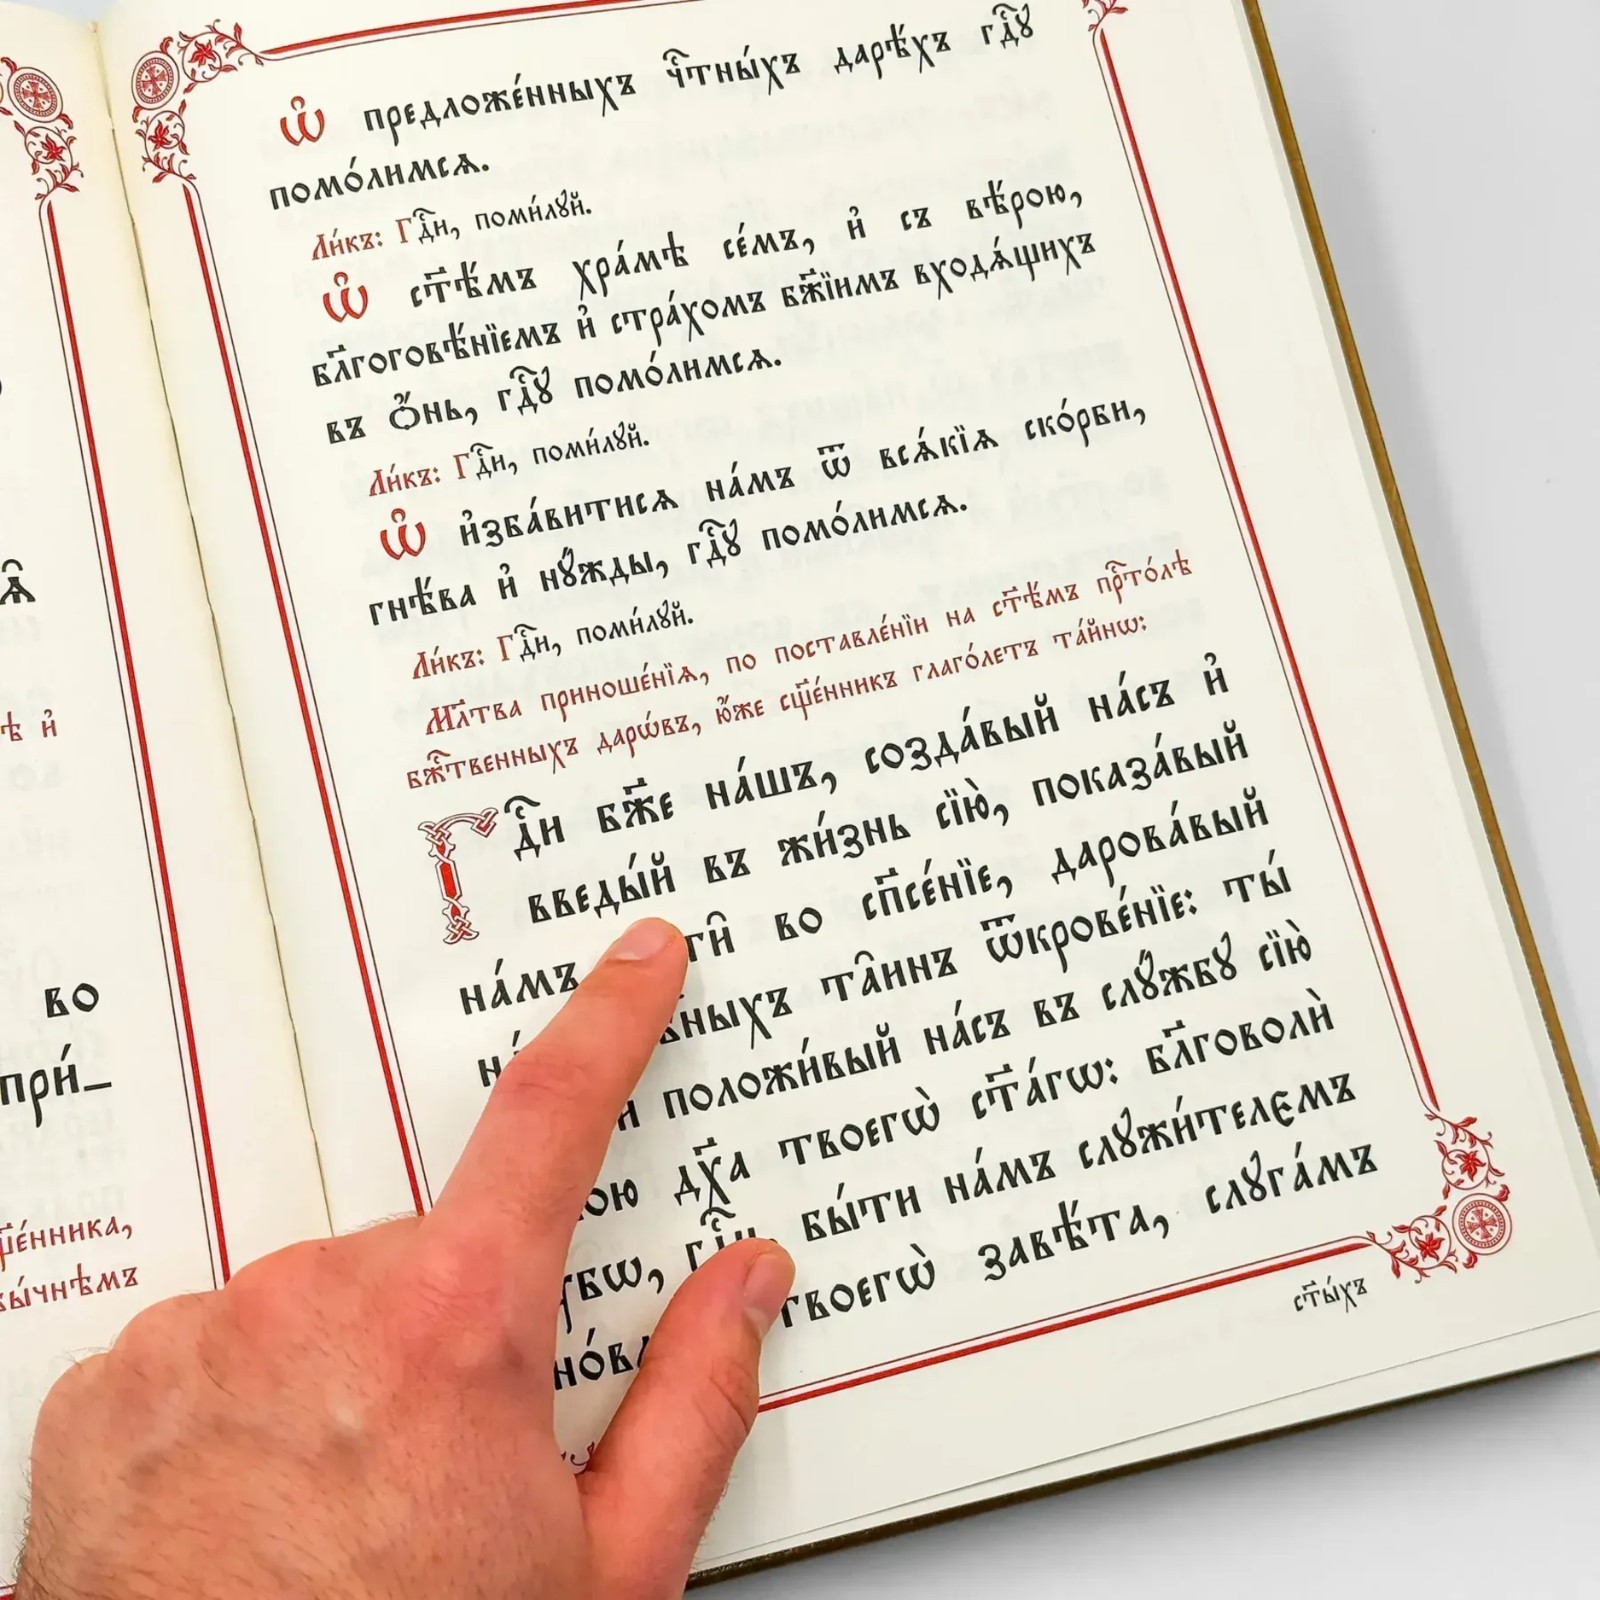 ѣ и҆
во
при́_
щ҃е́нника,
вы́чнѣмъ
Ѡ҆ предложе́нныхъ чⷭ҇тны́хъ дарѣ́хъ гдⷭ҇ꙋ
помо́лимсѧ.
Ли́къ: Гдⷭ҇и, поми́лꙋй.
Ѡ҆ ст҃ѣ́мъ хра́мѣ се́мъ, и҆ съ вѣ́рою,
бл҃гоговѣ́нїемъ и҆ стра́хомъ бж҃їимъ входѧ́щихъ
въ ѻ҆́нь, гдⷭ҇ꙋ помо́лимсѧ.
Ли́къ: Гдⷭ҇и, поми́лꙋй.
Ѡ҆ и҆зба́витисѧ на́мъ ѿ всѧ́кїѧ ско́рби,
гнѣ́ва и҆ нꙋ́жды, гдⷭ҇ꙋ помо́лимсѧ.
Ли́къ: Гдⷭ҇и, поми́лꙋй.
Мл҃тва приноше́нїѧ, по поставле́нїи на ст҃ѣ́мъ прⷭ҇то́лѣ
бж҃е́ственныхъ дарѡ́въ, ю҆́же сщ҃е́нникъ глаго́летъ та́йнѡ:
Гдⷭ҇и бж҃е на́шъ, созда́вый на́съ и҆
введы́й въ жи́знь сїю̀, показа́вый
на́мъ во сп҃се́нїе, дарова́вый
та̑инъ ѿкрове́нїе: ты́
положи́вый на́съ въ слꙋ́жбꙋ сїю̀
дх҃а твоегѡ̀ ст҃а́гѡ: бл҃говолѝ
бы́ти на́мъ слꙋжи́телємъ
твоегѡ̀ завѣ́та, слꙋга́мъ
ст҃ы́хъ